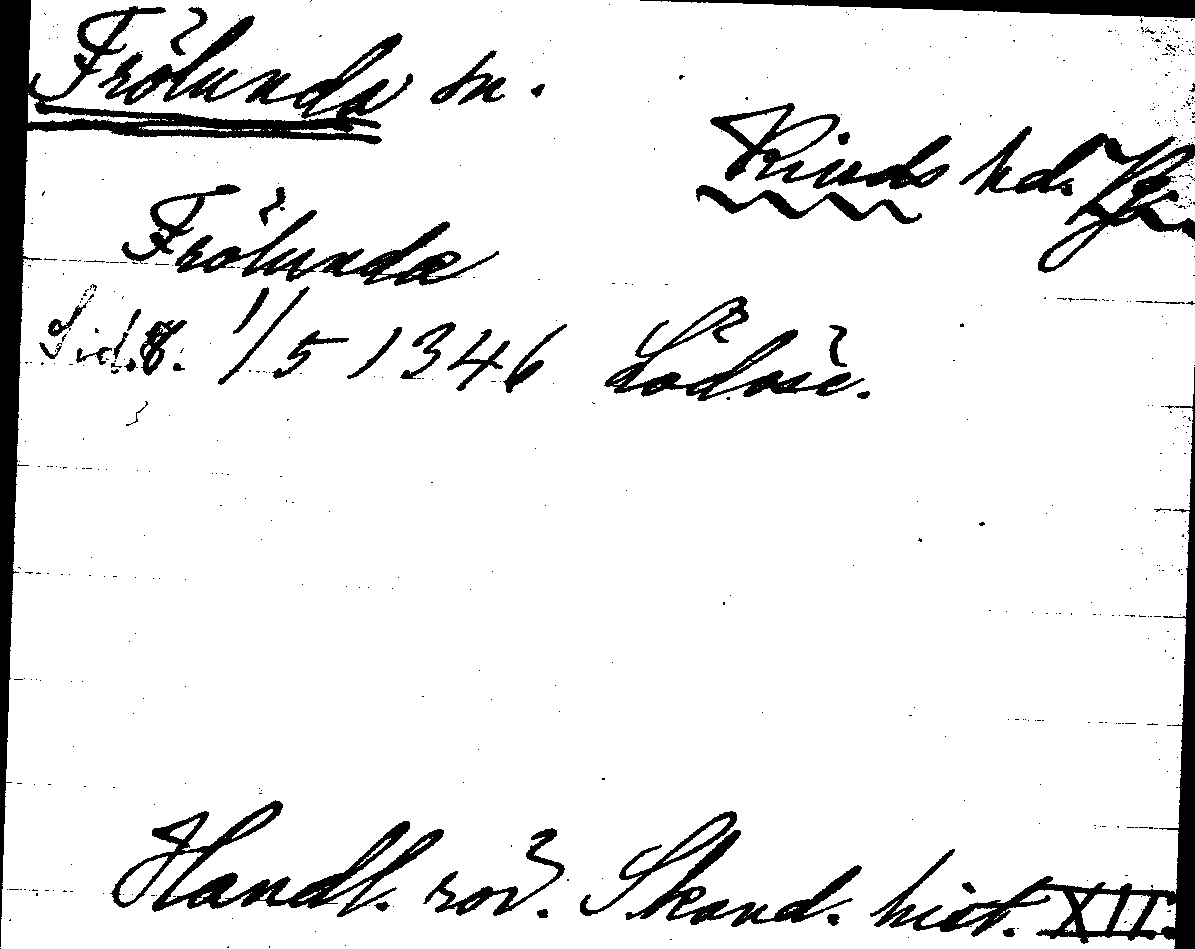 Frölunda sn.
Kinds hd. Vg.
Frölundæ
Sid. 8. 1/5 1346 Lödose.
Handl. rör. Skand. hist. XII.